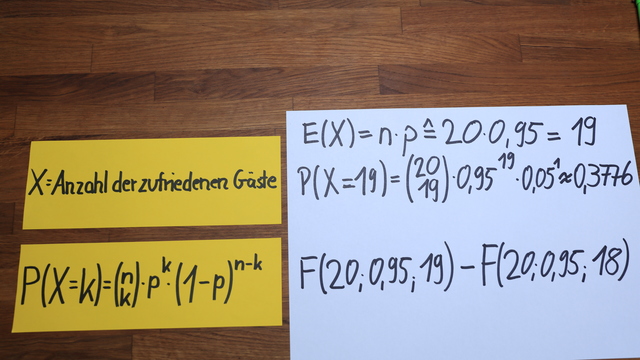 X=Anzahl der zufriedenen Gäste
P(X=k)=(n k)·p^k·(1-p)^n-k
E(X)=n·p≙20·0,95=19
P(X=19)=(20 19)·0,95^19·0,05^1≈0,3776
F(20;0,95;19)-F(20;0,95;18)